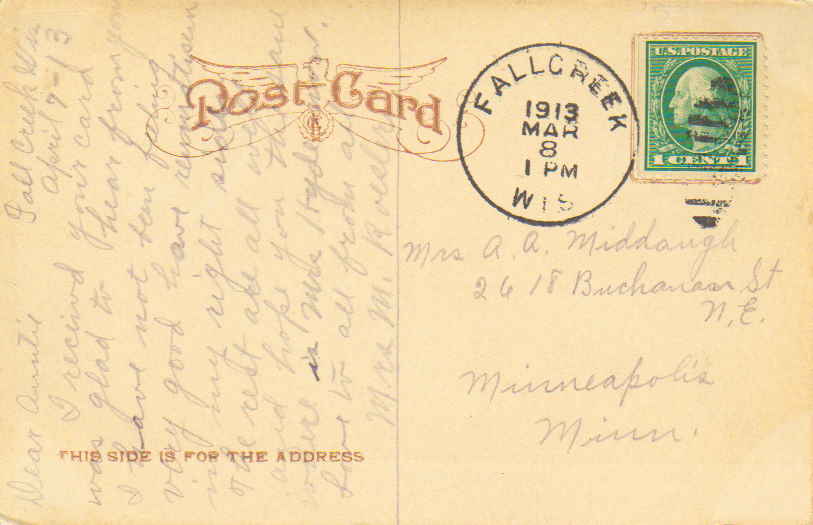 Post Card
FALL CREEK
1913
MAR
8
1 PM
WIS
U.S. POSTAGE
1 CENT 1
Mrs A. A. Middaugh
2618 Buchanan St
N.E.
Minneapolis
Minn.
THIS SIDE IS FOR THE ADDRESS
Fall Creek Wis
April 7-13
Dear Auntie
I received your card
was glad to hear from you
I have not been feeling
very good have
in my right side
the rest are all well
and hope you the same
where is Mrs Hyde now.
love to all from all
Mrs M.